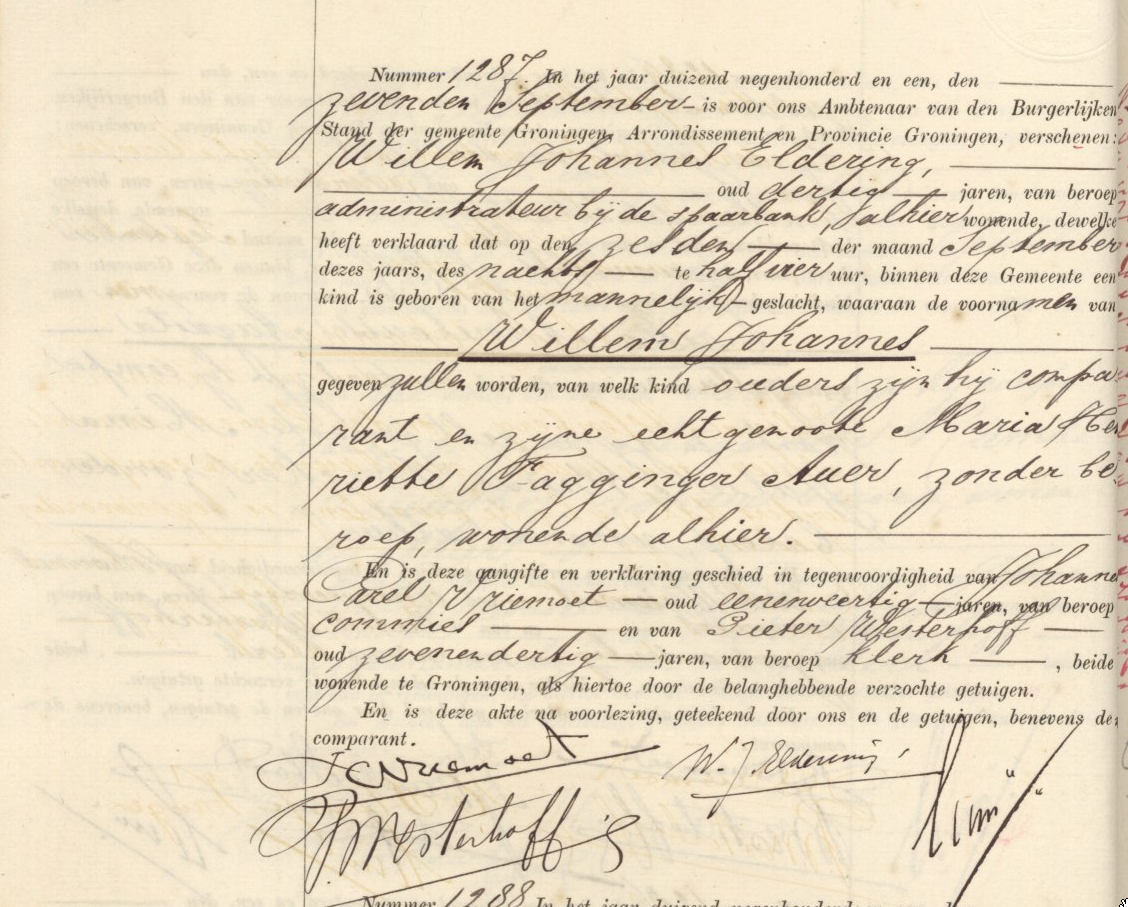 Nummer 1287. In het jaar duizend negenhonderd en een, den
zevenden September is voor ons Ambtenaar van den Burgerlijken
Stand der gemeente Groningen, Arrondissement en Provincie Groningen, verschenen:
Willem Johannes Eldering,
oud dertig jaren, van beroep
administrateur bij de spaarbank, alhier wonende, dewelke
heeft verklaard dat op den zesden der maand September
dezes jaars, des nachts te half vier uur, binnen deze Gemeente een
kind is geboren van het mannelijk geslacht, waaraan de voornamen van
Willem Johannes
gegeven zullen worden, van welk kind ouders zijn hij compa
rant en zijne echtgenoote Maria Hen
riette Fagginger Auer, zonder be
roep, wonende alhier.
En is deze aangifte en verklaring geschied in tegenwoordigheid van Johannes
Carel Vriemoet oud eenenveertig jaren, van beroep
commies en van Pieter Westerhoff
oud zevenendertig jaren, van beroep klerk, beide
wonende te Groningen, als hiertoe door de belanghebbende verzochte getuigen.
En is deze akte na voorlezing, geteekend door ons en de getuigen, benevens den
comparant.
JCVriemoet W. J. Eldering
P. Westerhoff
Nummer 1288 In het jaar duizend negenhonderd en